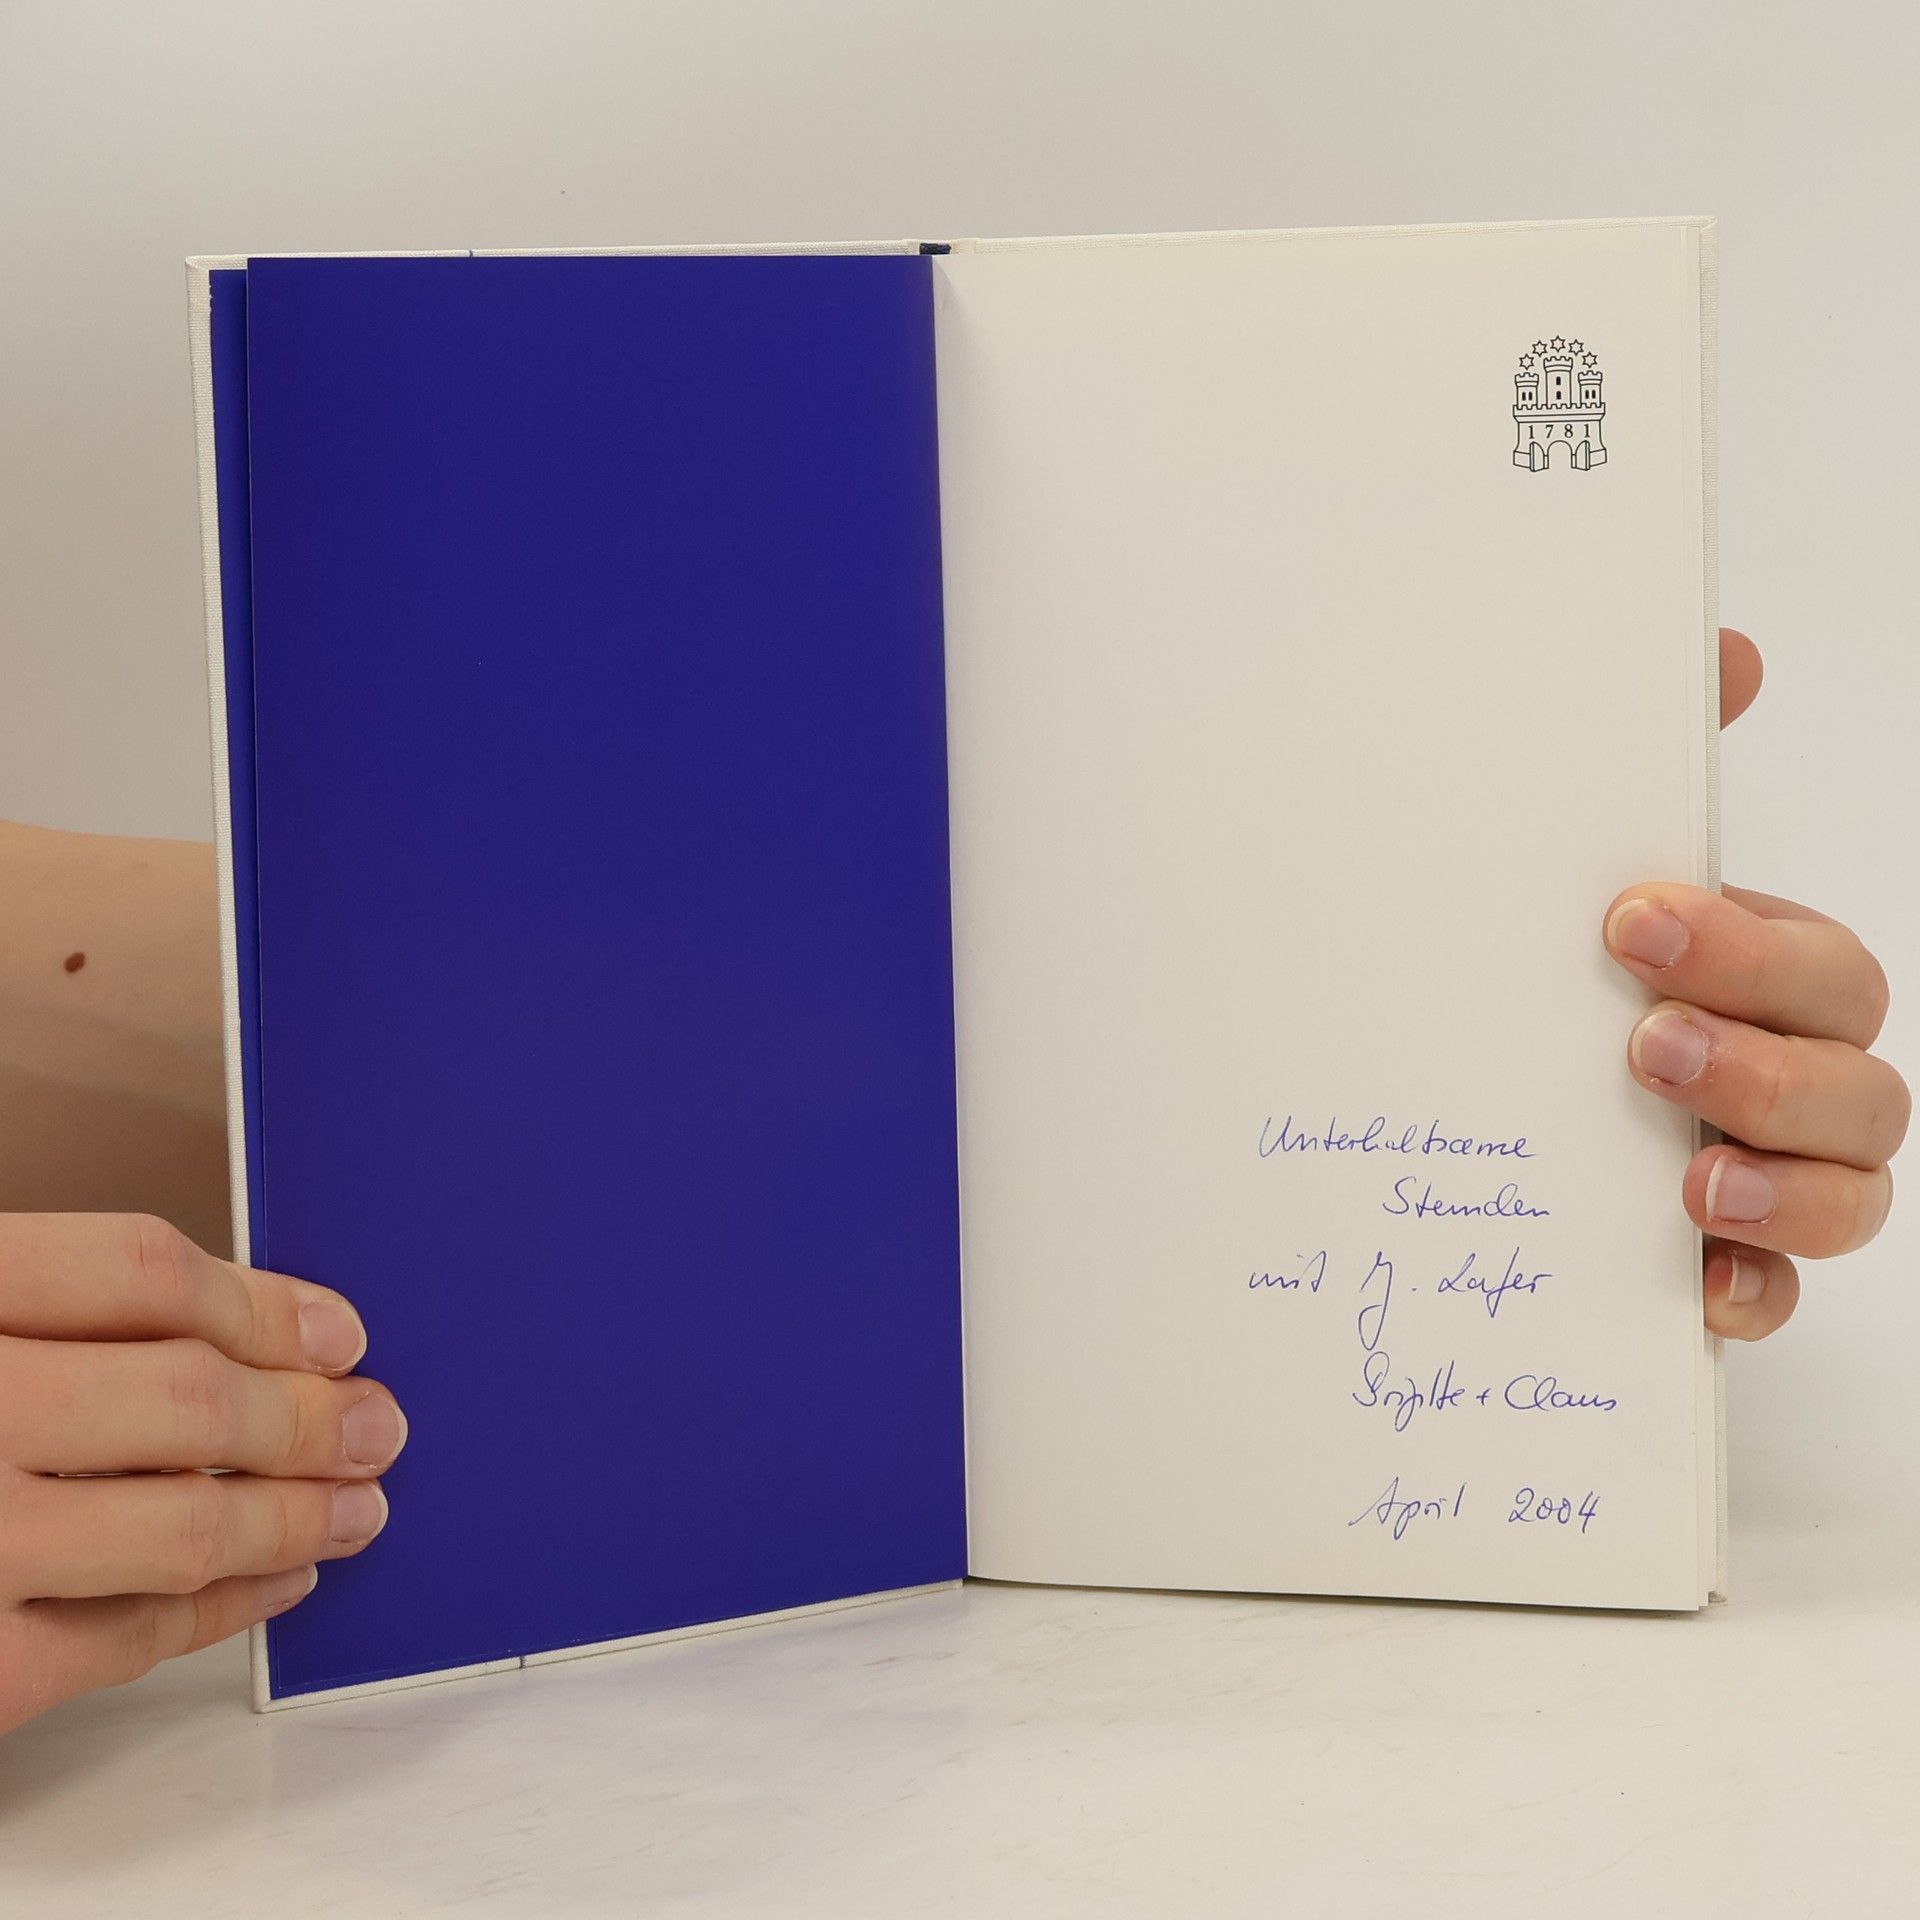 1781
Unterhaltsame
Stunden
mit J. Lafer
Brigitte + Claus
April 2004